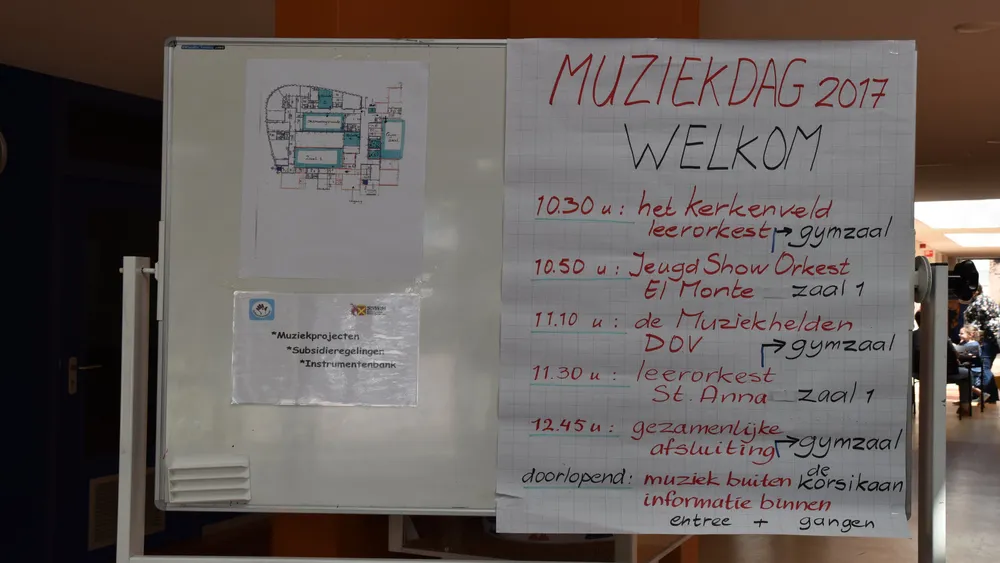 *Muziekprojecten
*Subsidieregelingen
*Instrumentenbank
MUZIEKDAG 2017
WELKOM
10.30 u: het Kerkenveld
leerorkest → gymzaal
10.50 u: Jeugd Show Orkest
El Monte zaal 1
11.10 u: de Muziekhelden
DOV → gymzaal
11.30 u: leerorkest
St. Anna zaal 1
12.45 u: gezamenlijke
afsluiting → gymzaal
doorlopend: muziek buiten de Korsikaan
informatie binnen
entree + gangen